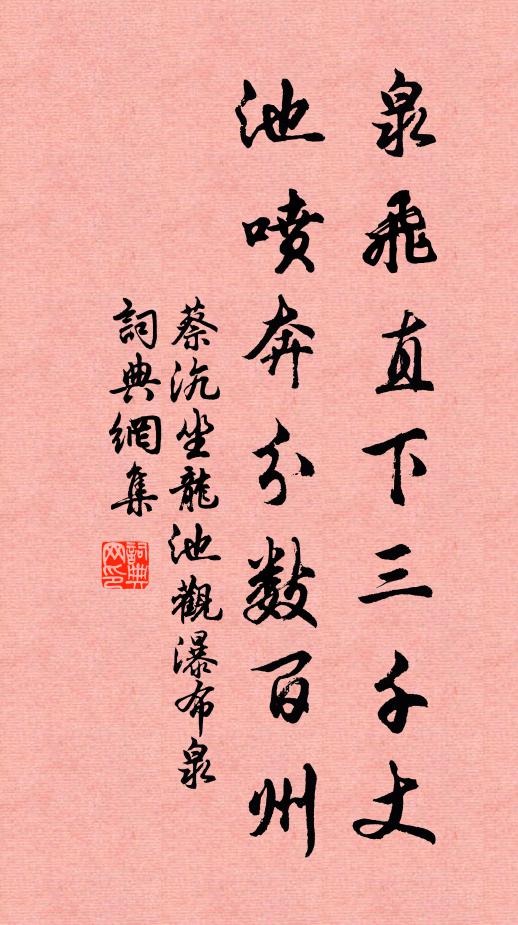 泉飛直下三千丈
池噴奔分數百州
蔡沉坐龍池觀瀑布泉
詞典網集
詞典網印